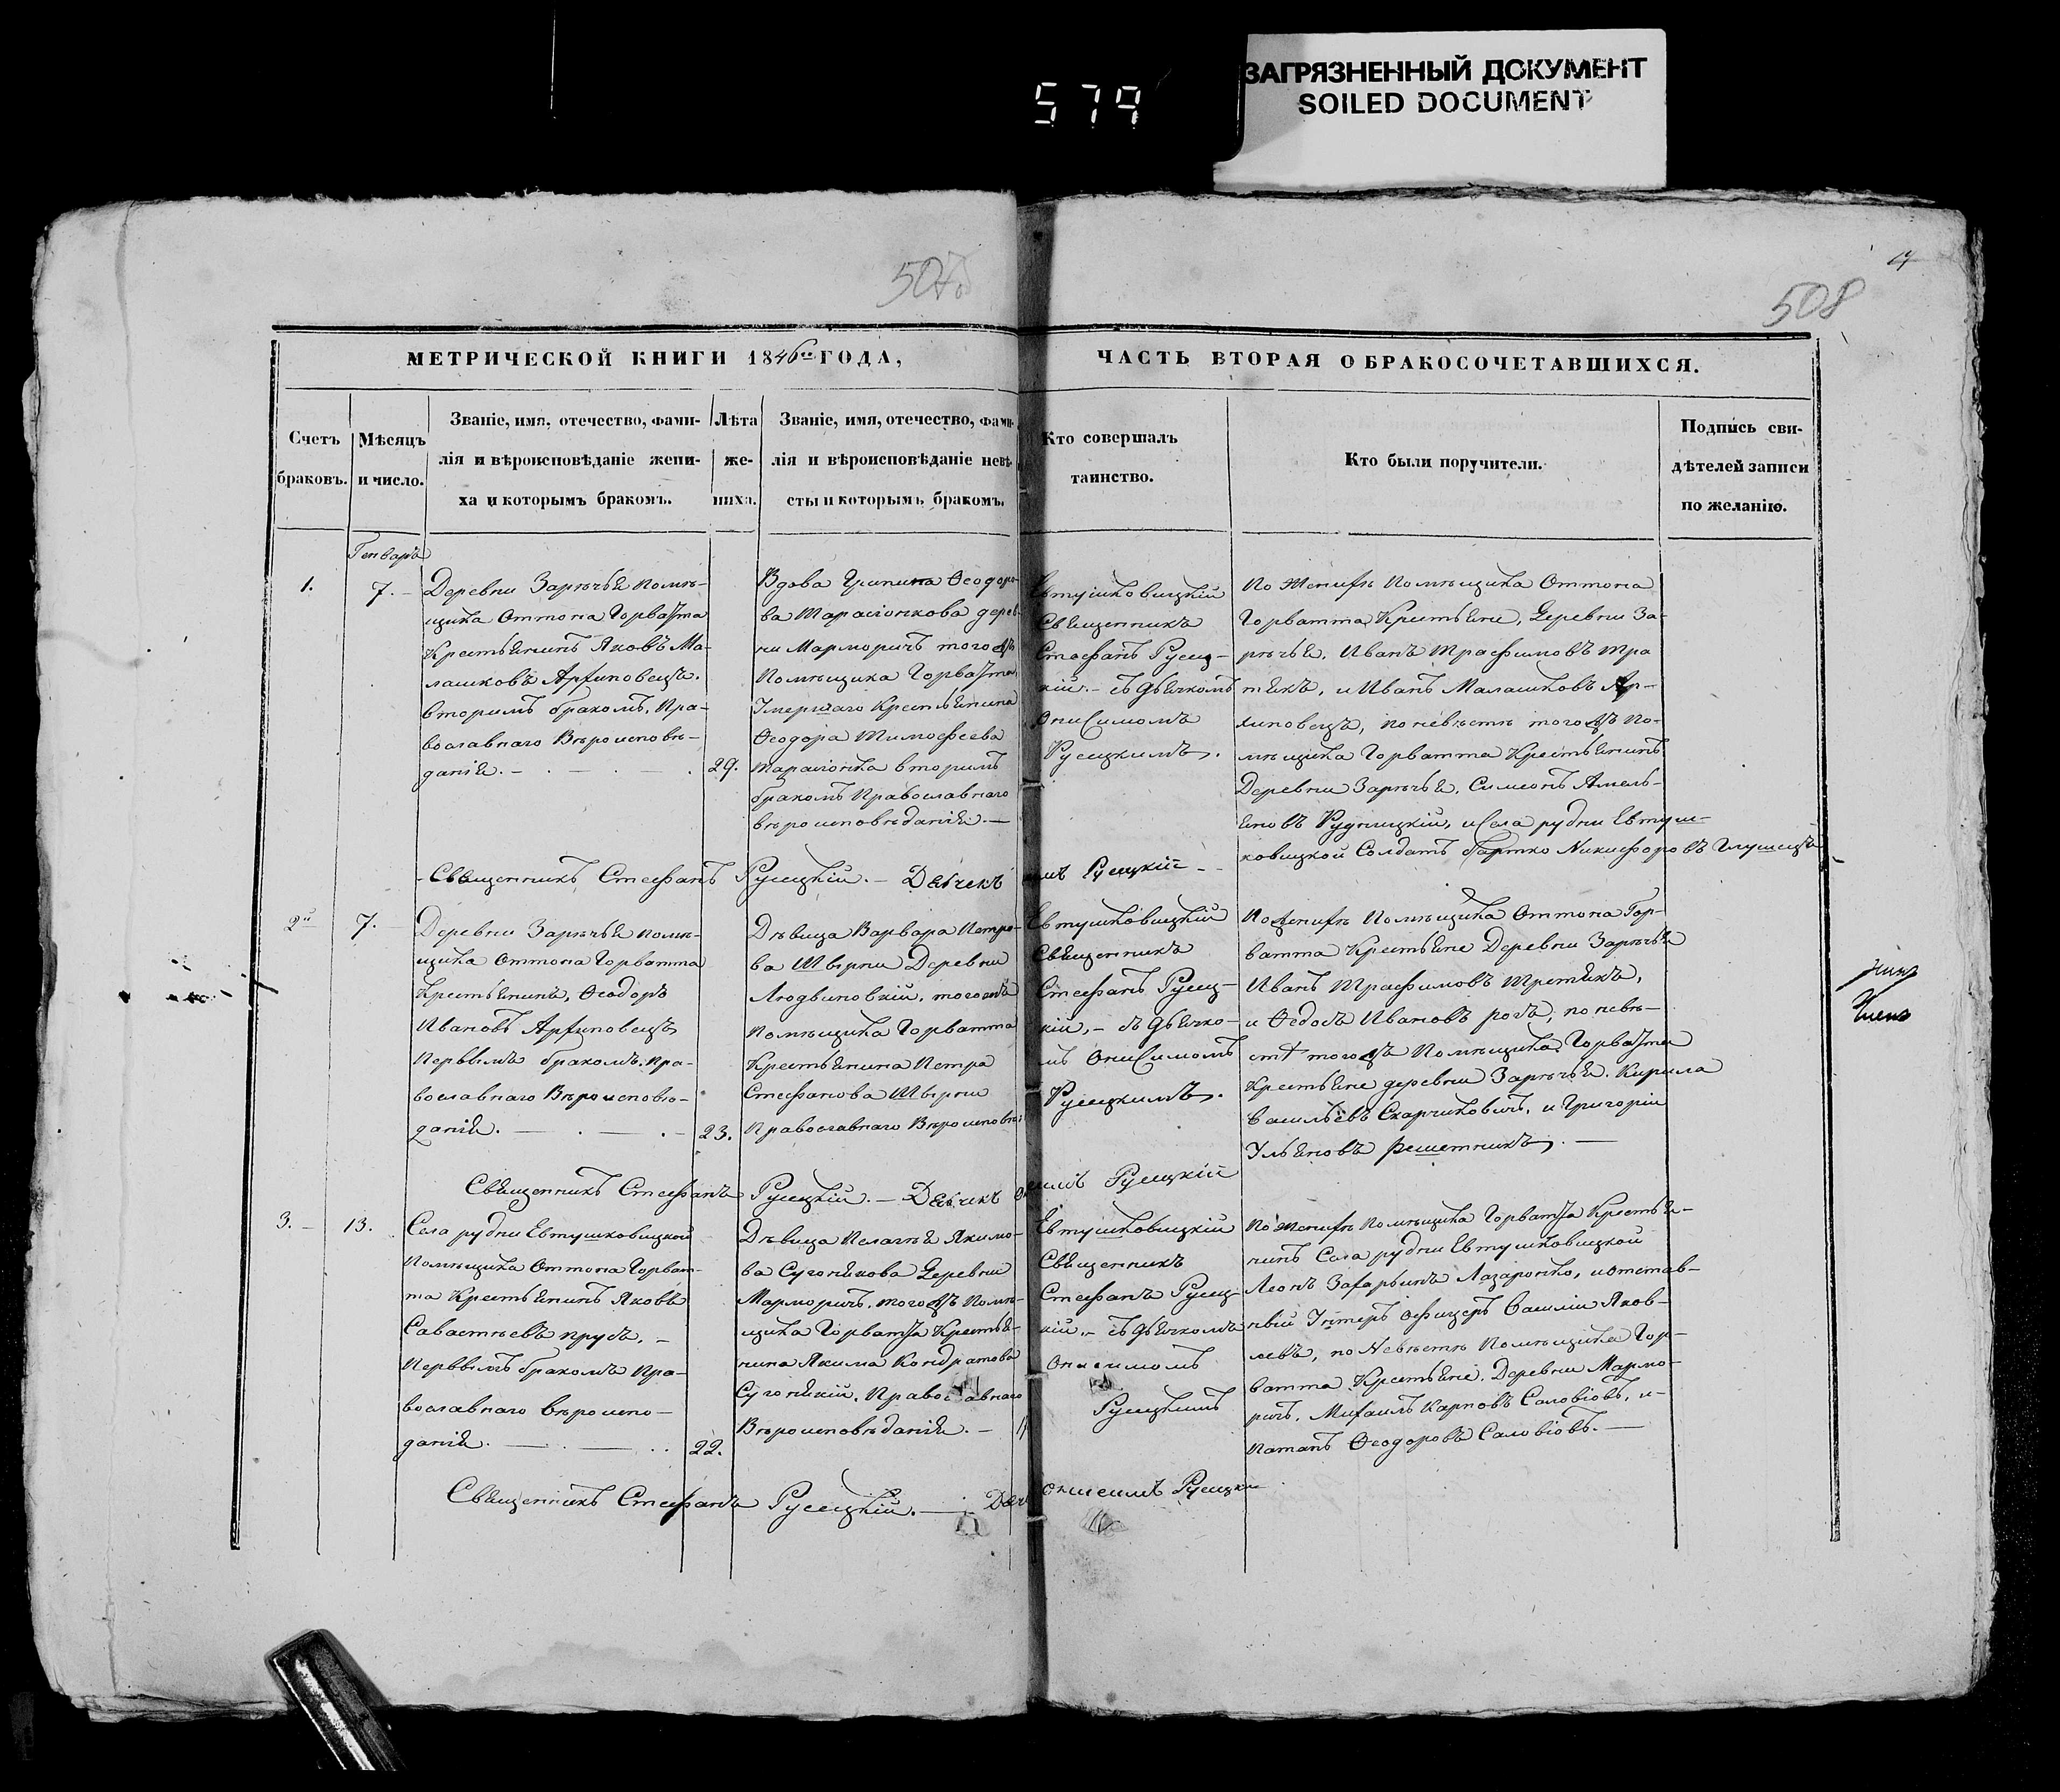 ЗАГРЯЗНЕННЫЙ ДОКУМЕНТ
SOILED DOCUMENT
579
508
МЕТРИЧЕСКОЙ КНИГИ 1846го ГОДА,
ЧАСТЬ ВТОРАЯ О БРАКОСОЧЕТАВШИХСЯ.
Счетъ
браковъ.
Мѣсяцъ
и число.
Званіе, имя, отечество, фами-
лія и вѣроисповѣданіе жени-
ха и которымъ бракомъ.
Лѣта
же-
ниха.
Званіе, имя, отечество, фами-
лія и вѣроисповѣданіе невѣ-
сты и которымъ бракомъ.
Кто совершалъ
таинство.
Кто были поручители.
Подпись сви-
дѣтелей записи
по желанію.
Генваря
1.
7.
Деревни Зарѣчья помѣ-
щика Оттона Горватта
Крестьянинъ Яковъ Ма-
лашковъ Архиповецъ.
вторымъ бракомъ. Пра-
вославнаго Вѣроисповѣ-
данія.
29.
Вдова Грипина Ѳеодоро-
ва Тарасюнкова дерев-
ни Марморичъ того жъ
Помѣщика Горватта
Умершаго Крестьянина
Ѳеодора Тимофеева
Тарасюнка вторымъ
бракомъ Православнаго
вѣроисповѣданія.
Евтушковицкій
Священникъ
Стефанъ Русец-
кій. съ дьячкомъ
Онисимомъ
Русецкимъ.
По женихѣ Помѣщика Оттона
Горватта Крестьяне, Деревни За-
рѣчья, Иванъ Трафимовъ Тре
тякъ, и Иванъ Малашковъ Ар-
хиповецъ, по невѣстѣ того жъ По-
мѣщика Горватта Крестьянинъ
Деревни Зарѣчья, Симеонъ Амель-
яновъ Рудницкій, и Села рудни Евтуш-
ковицкой Солдатъ Никифоровъ
Священникъ Стефанъ Русецкій. Дьячекъ Русецкій
2й
7.
Деревни Зарѣчья помѣ-
щика Оттона Горватта
Крестьянинъ, Ѳеодоръ
Ивановъ Архиповецъ
Первымъ бракомъ. пра-
вославнаго Вѣроисповѣ-
данія.
23.
Дѣвица Варвара Петро-
ва Деревни
Людвиновкій, того жъ
Помѣщика Горватта
Крестьянина Петра
Стефанова
Православнаго Вѣроисповѣ
Евтушковицкій
Священникъ
Стефанъ Русец-
кій, съ дьячко-
мъ Онисимомъ
Русецкимъ.
По женихѣ Помѣщика Оттона Гор-
ватта Крестьяне Деревни Зарѣчья
Иванъ Трафимовъ Третякъ,
и Ѳедосъ Ивановъ, по невѣ-
стѣ того жъ Помѣщика Горватта
Крестьяне деревни Зарѣчья. Кирила
Васильевъ Скарчиковичъ, и Григорій
Ульяновъ Решетникъ.
Священникъ Стефанъ Русецкій. Дьячекъ Русецкій
3.
13.
Села рудни Евтушковицкой
Помѣщика Оттона Горват-
та Крестьянинъ Яковъ
Савастѣевъ прусъ.
Первымъ бракомъ Пра-
вославнаго вѣроиспо-
данія.
22.
Дѣвица Пелагѣя Якимо-
ва Сугонякова Деревни
Марморичъ, того жъ Помѣ-
щика Горватта Крестья-
нина Якима Кондратова
Православнаго
Вѣроисповѣданія.
Евтушковицкій
Священникъ
Стефанъ Русец-
кій. съ дьячкомъ
Онисимомъ
Русецкимъ
По женихѣ Помѣщика Горватта Крестья-
нинъ Села рудни Евтушковицкой
Леонъ Захарьинъ Лазаронко, и отстав-
ный Унтеръ офицеръ Василій Яков-
левъ, по Невѣстѣ Помѣщика Гор-
ватта Крестьяне. Деревни Мармо-
ричъ, Михаилъ Карповъ Саловіовъ, и-
Патапъ Ѳеодоровъ Саловіовъ.
Священникъ Стефанъ Русецкій. Онисимъ Русецкій